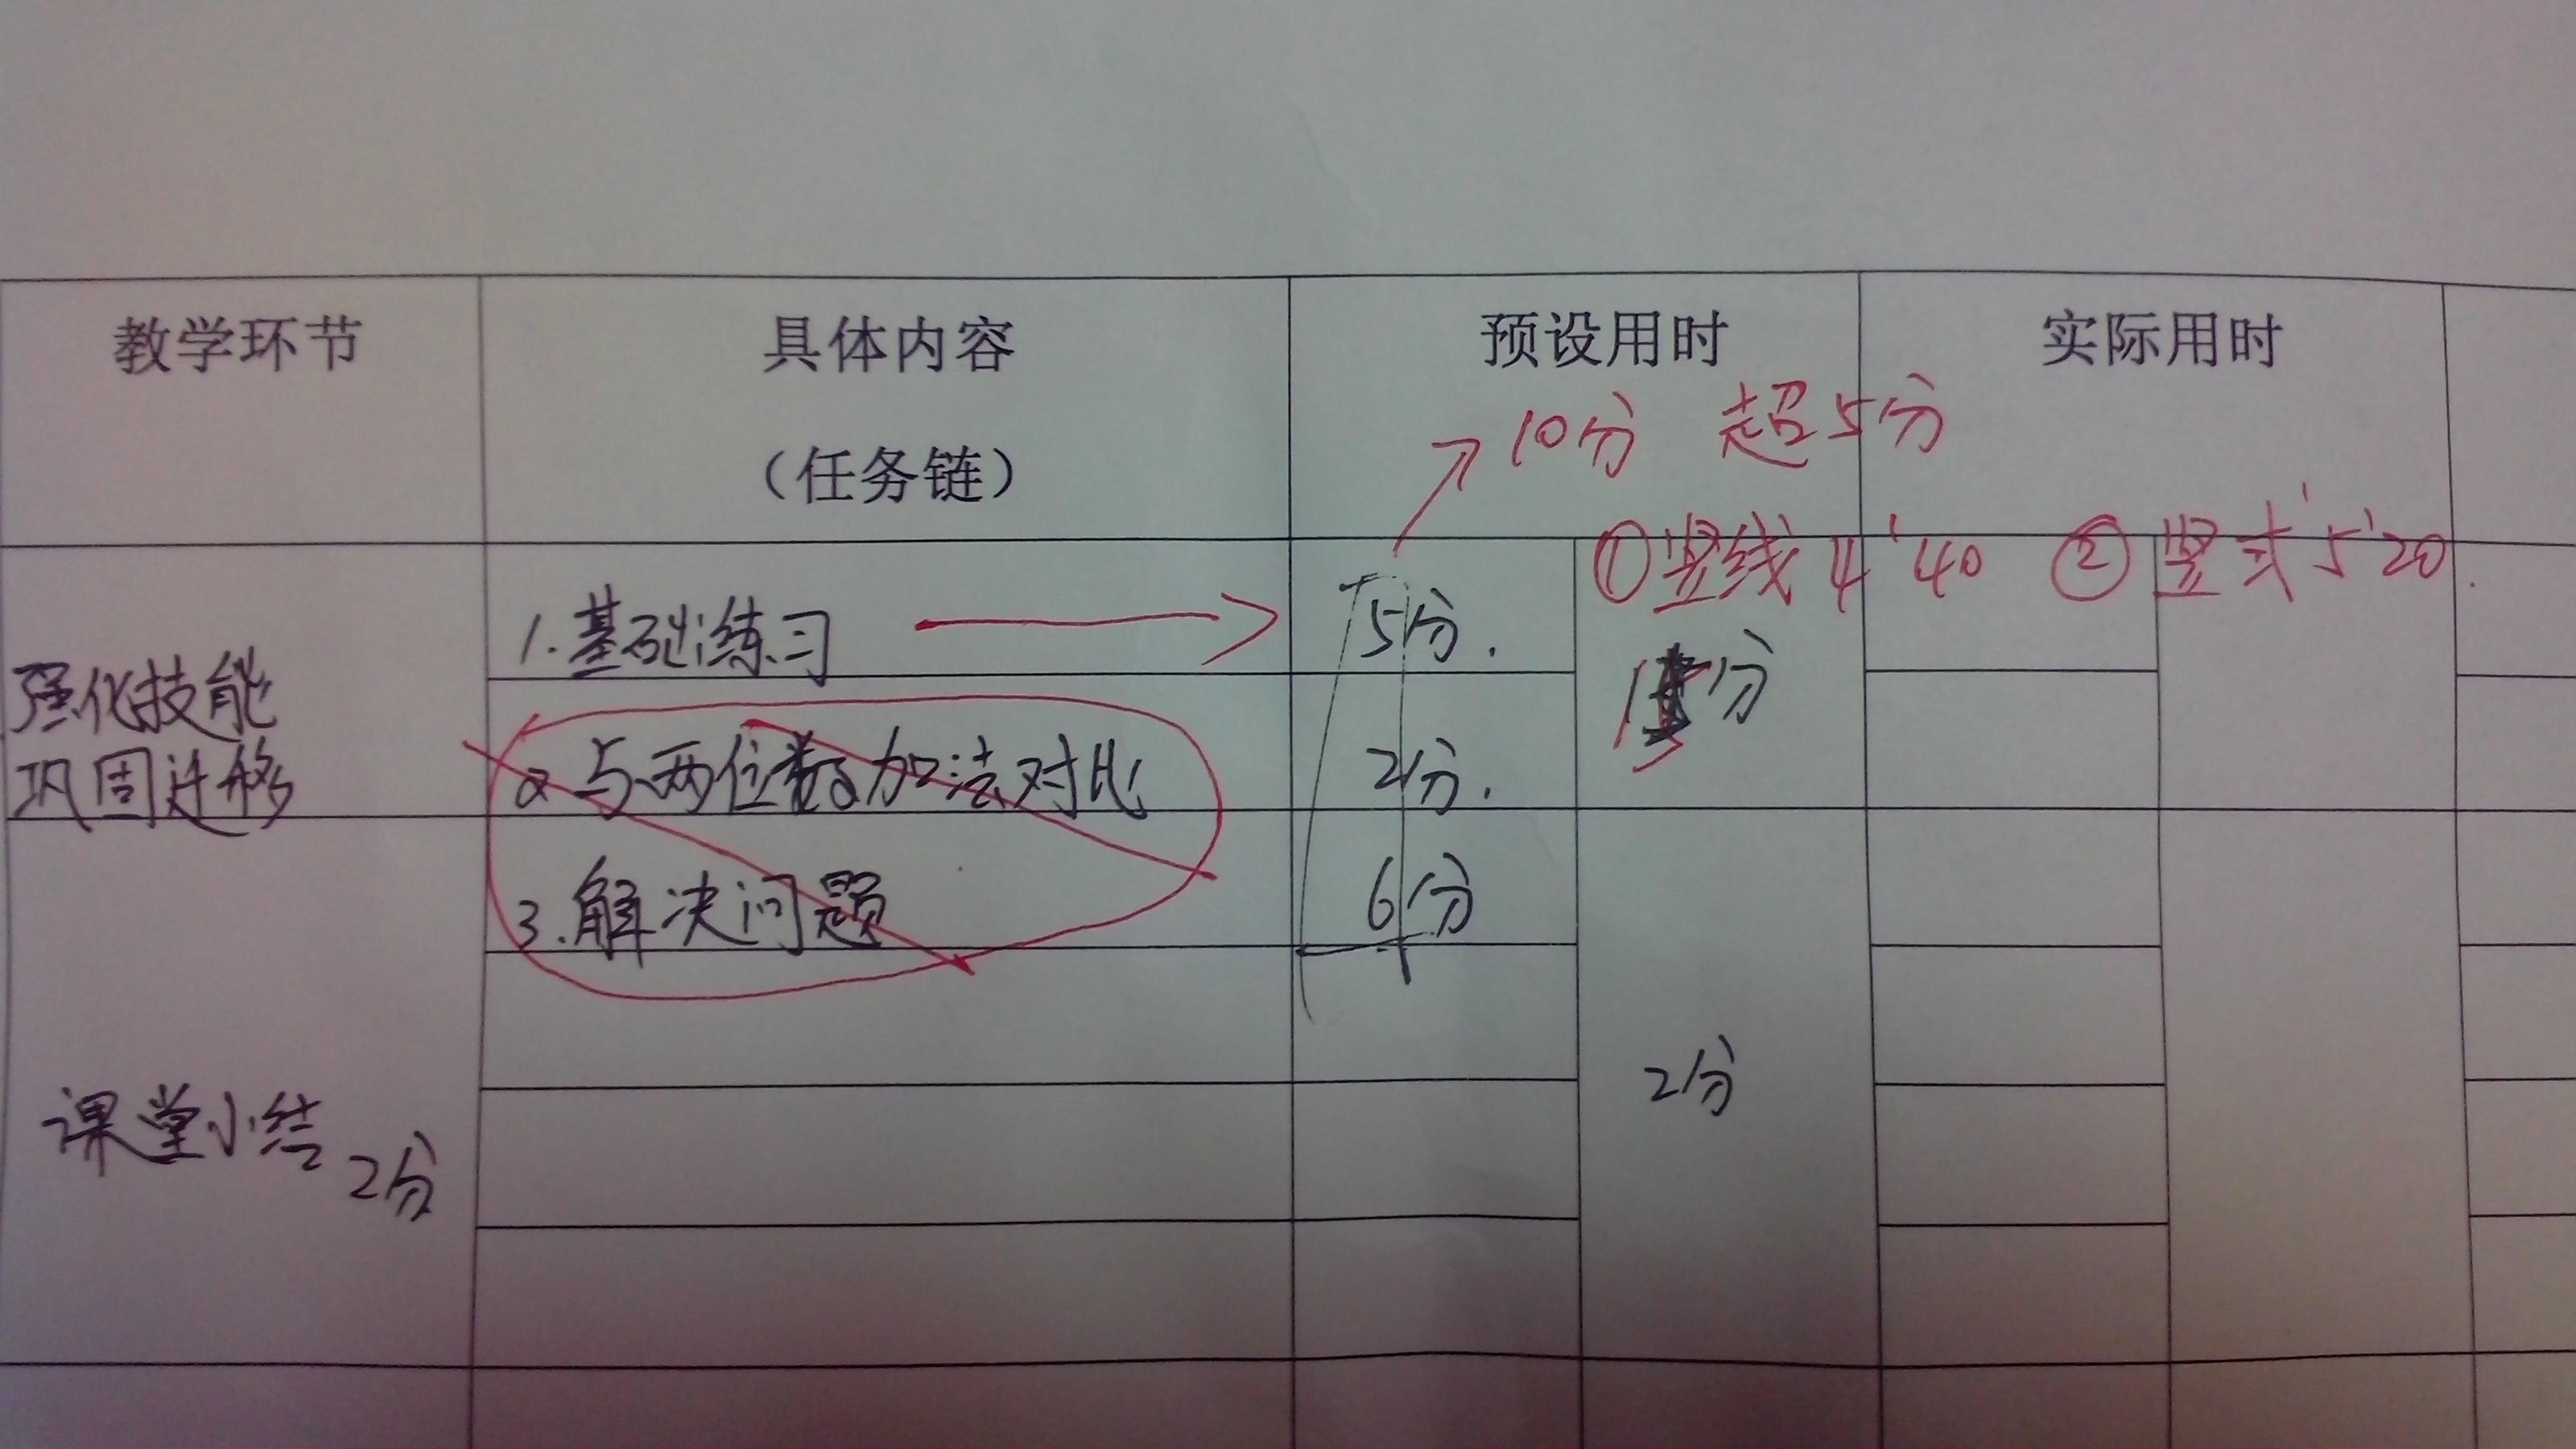 教学环节 具体内容 预设用时 实际用时
（任务链）
10分 超5分
①竖线4'40 ②竖式5'20
1.基础练习 5分.
强化技能
巩固迁移
2 与两位数加法对比 2分.
3.解决问题 6分
课堂小结 2分
2分